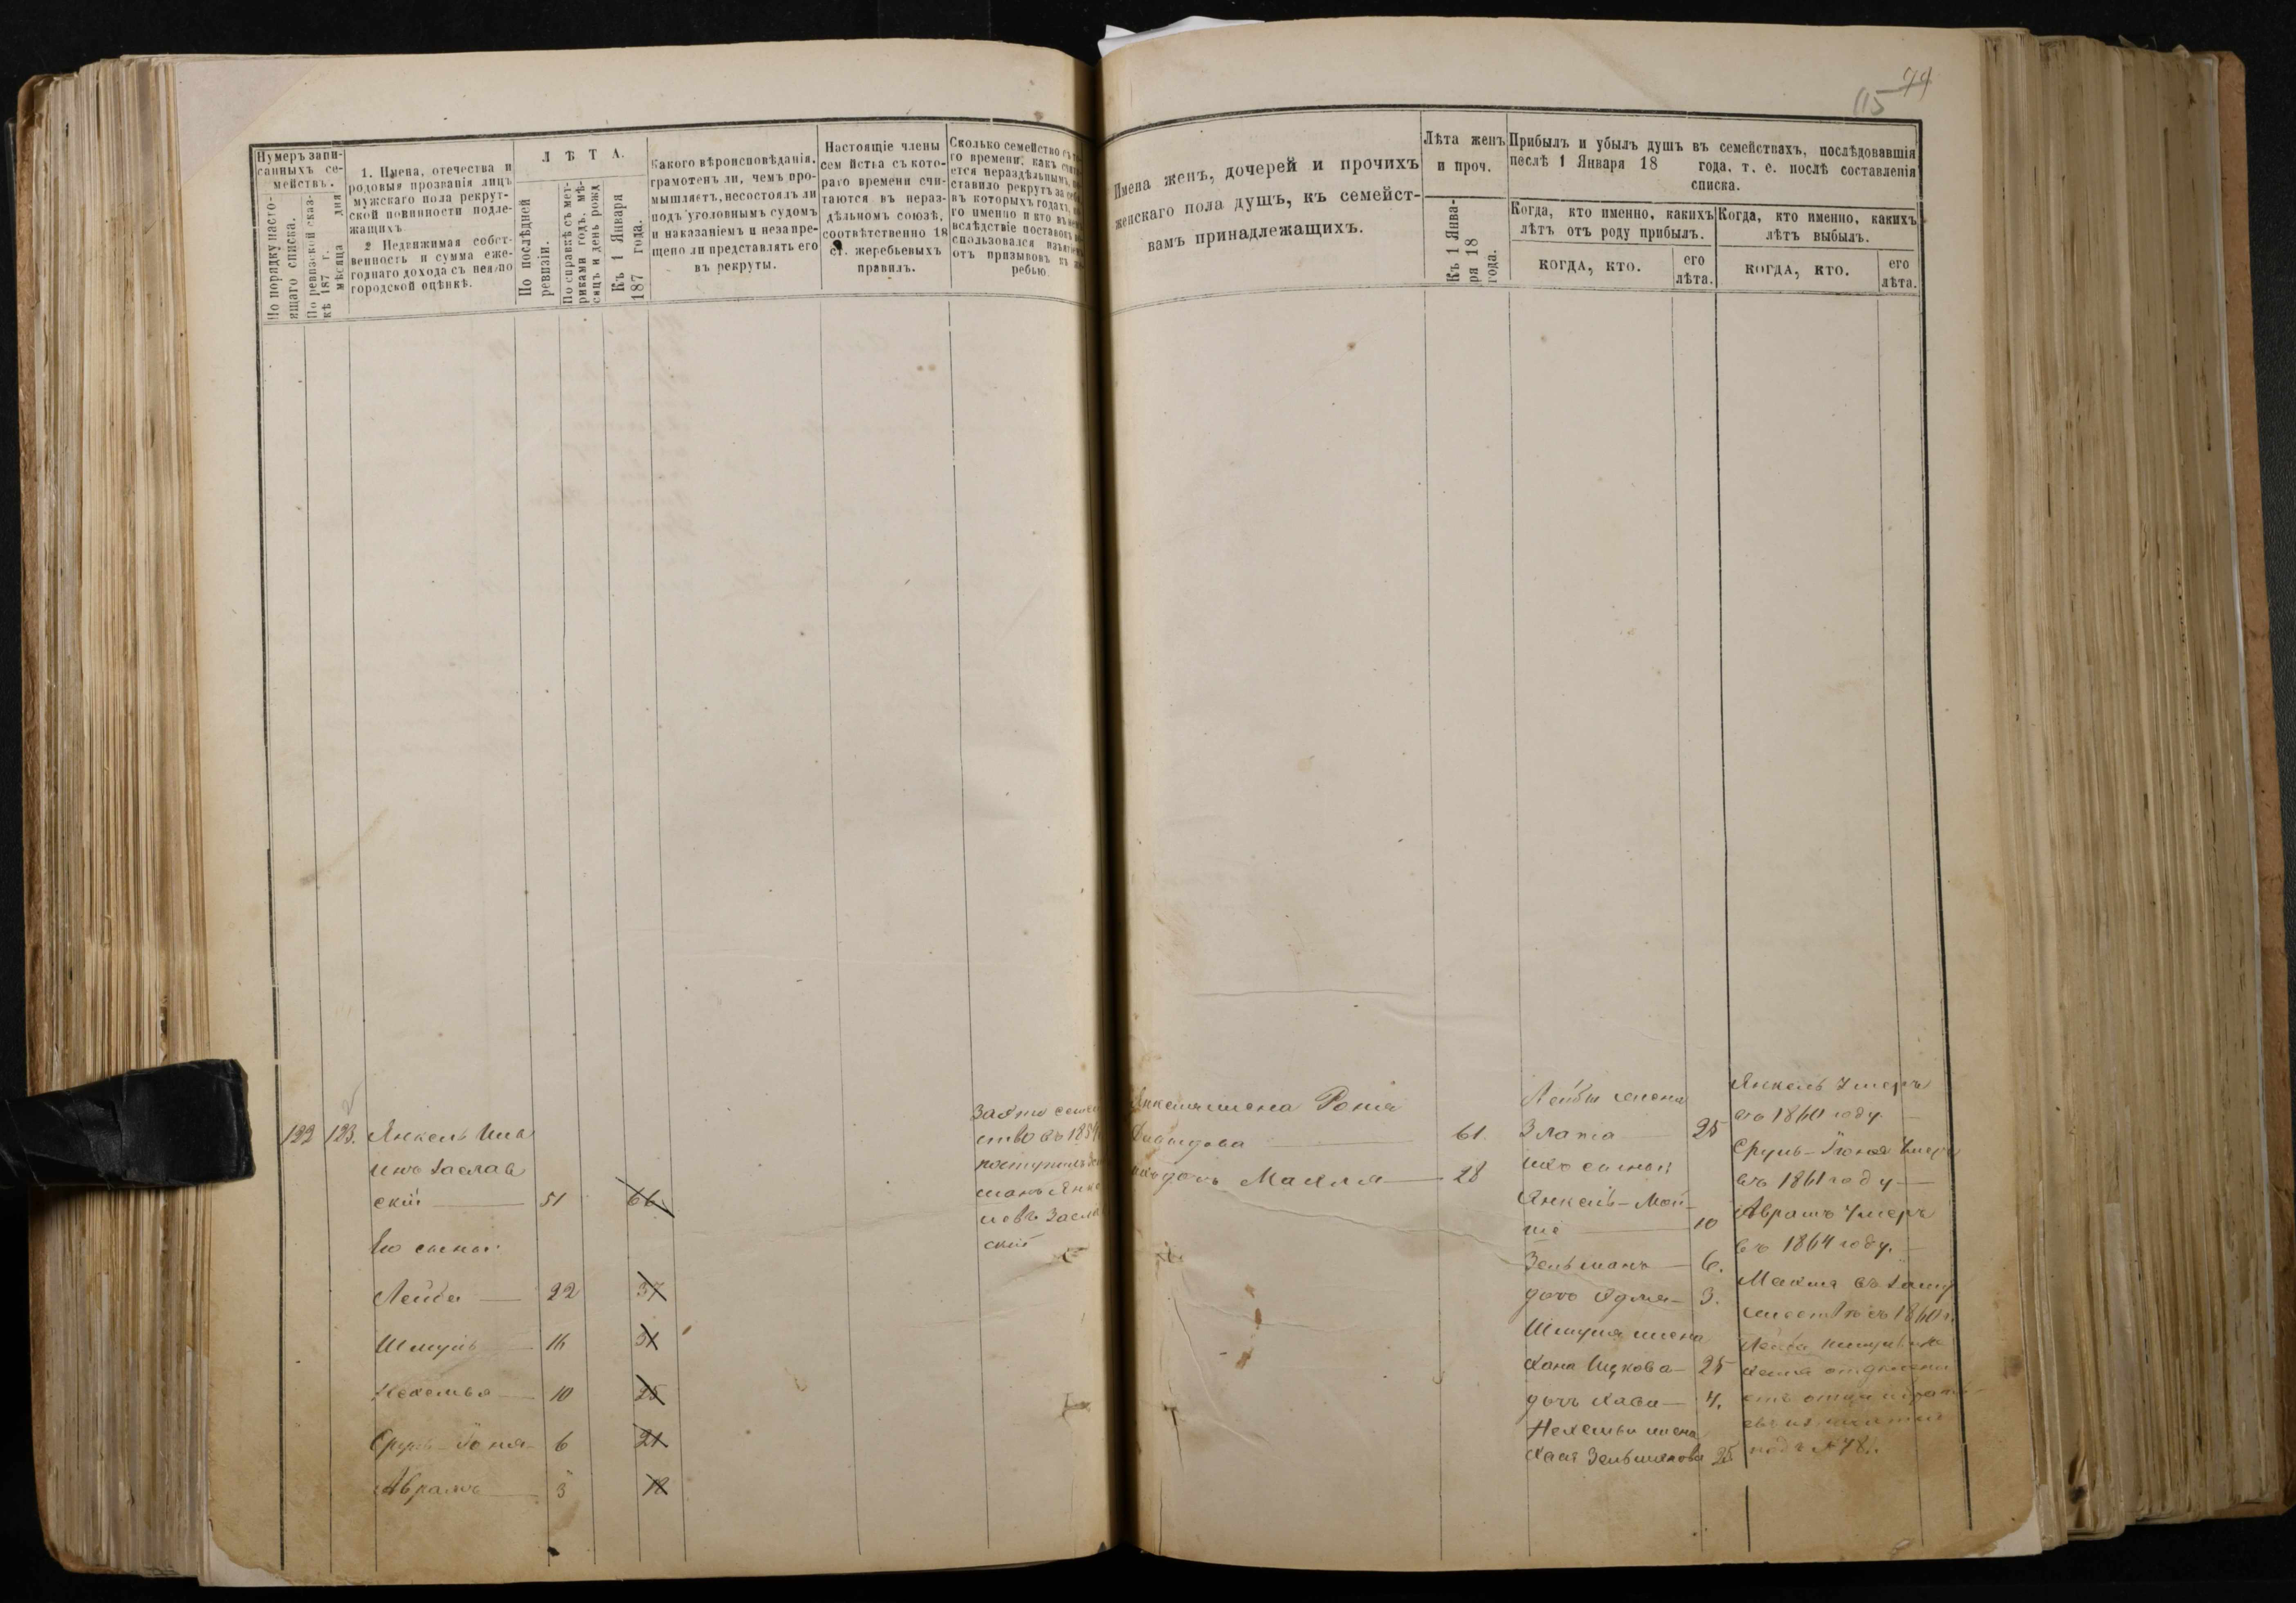 115 74
Нумеръ запи-
санныхъ се-
мействъ.
По порядку насто-
ящаго списка.
По ревизской сказ-
кѣ 187 г.
мѣсяца дня
1. Имена, отечества и
родовыя прозванія лицъ
мужскаго пола рекрут-
ской повинности подле-
жащихъ
2 Недвижимая собст-
венность и сумма еже-
годнаго дохода съ нея по
городской оцѣнкѣ.
ЛѢТА.
По послѣдней
ревизіи.
По справкѣ съ мет-
риками годъ, мѣ-
сяцъ и день рожд
Къ 1 Января
187 года.
Какого вѣроисповѣданія,
грамотенъ ли, чемъ про-
мышляетъ, несостоялъ ли
подъ уголовнымъ судомъ
и наказаніемъ и незапре-
щено ли представлять его
въ рекруты.
Настоящіе члены
сем йства съ кото-
раго времени счи-
таются въ нераз-
дѣльномъ союзѣ,
соотвѣтственно 18
ст. жеребьевыхъ
правилъ.
Сколько семейство съ
го времени, какъ
ется нераздѣльнымъ,
ставило рекрутъ за
въ которыхъ годахъ,
го именно и кто въ
вслѣдствіе поставокъ
спользовался изъятіемъ
отъ призывовъ къ
ребью.
Имена женъ, дочерей и прочихъ
женскаго пола душъ, къ семейст-
вамъ принадлежащихъ.
Лѣта женъ
и проч.
Къ 1 Янва-
ря 18
года.
Прибылъ и убылъ душъ въ семействахъ, послѣдовавшія
послѣ 1 Января 18 года, т. е. послѣ составленія
списка.
Когда, кто именно, какихъ
лѣтъ отъ роду прибылъ.
когда, кто.
его
лѣта.
Когда, кто именно, какихъ
лѣтъ выбылъ.
когда, кто.
его
лѣта.
122 123. Янкель
Заслав
скій 51 66
Его сыны:
Лейба 22 37
Шмуль 16 31
Нехемья 10 25
Сруль-Іоня 6 21
Абрамъ 3 18
За это семей
ство въ 185
поступилъ
Янке
левъ Засла
скій
Янкеля жена Роня
Давидова 61.
ихъ дочь Малля 28
Лейбы жена
Злата 25
ихъ сыны:
Янкель-Мой-
ше 10
Зельманъ 6.
дочь 3.
Шмуля жена
Хана Ицкова 25
дочь Хава 4.
Нехемьи жена
Хая Зельманова 25
Янкель умеръ
въ 1860 году.
Сруль-Іоня умеръ
въ 1861 году
Абрамъ умеръ
въ 1864 году.
Малля въ заму
жествѣ съ 1860 г.
Лейба
отдѣлены
отъ отца
подъ № 78.